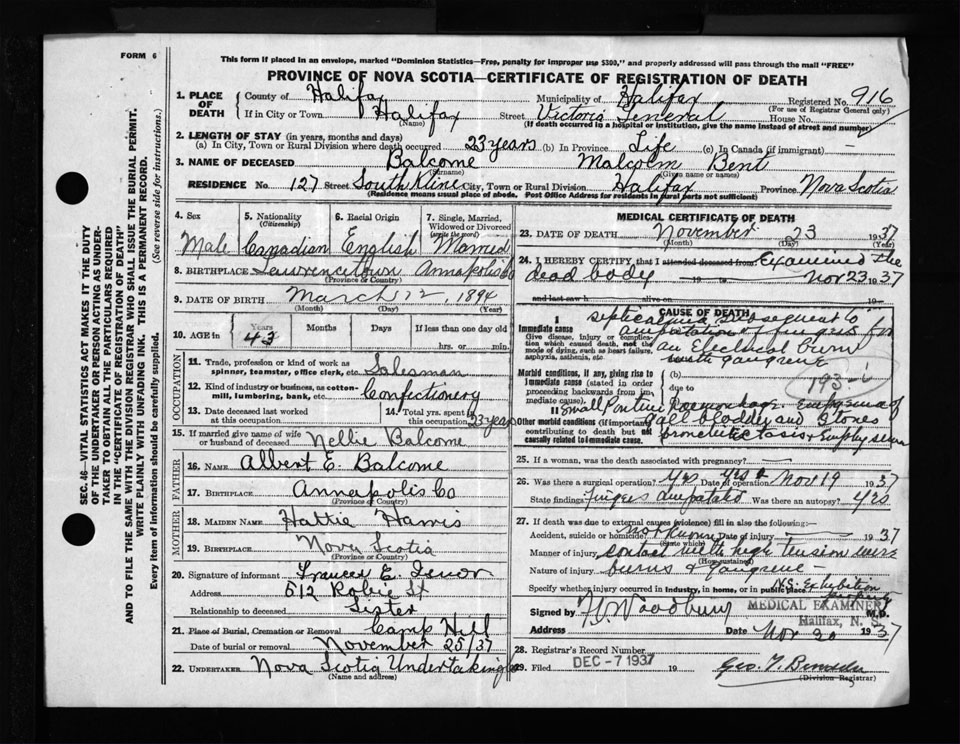 FORM 6
This form if placed in an envelope, marked "Dominion Statistics—Free, penalty for improper use $300," and properly addressed will pass through the mail "FREE"
PROVINCE OF NOVA SCOTIA—CERTIFICATE OF REGISTRATION OF DEATH
SEC. 46—VITAL STATISTICS ACT MAKES IT THE DUTY
OF THE UNDERTAKER OR PERSON ACTING AS UNDER-
TAKER TO OBTAIN ALL THE PARTICULARS REQUIRED
IN THE "CERTIFICATE OF REGISTRATION OF DEATH"
AND TO FILE THE SAME WITH THE DIVISION REGISTRAR WHO SHALL ISSUE THE BURIAL PERMIT.
WRITE PLAINLY WITH UNFADING INK. THIS IS A PERMANENT RECORD.
Every item of information should be carefully supplied. (See reverse side for instructions.)
1. PLACE OF DEATH County of Halifax Municipality of Halifax Registered No. 916
(For use of Registrar General only)
If in City or Town Halifax Street Victoria General House No.
(Name) (If death occurred in a hospital or institution, give the name instead of street and number)
2. LENGTH OF STAY (in years, months and days)
(a) In City, Town or Rural Division where death occurred 23 years (b) In Province Life (c) In Canada (if immigrant) —
3. NAME OF DECEASED Balcome Malcolm Bent
(Surname) (Given name or names)
RESIDENCE No. 127 Street South Kline City, Town or Rural Division Halifax Province Nova Scotia
(Residence means usual place of abode. Post Office Address for residents in rural parts not sufficient)
4. Sex 5. Nationality (Citizenship) 6. Racial Origin 7. Single, Married, Widowed or Divorced (write the word)
Male Canadian English Married
8. BIRTHPLACE Lawrencetown Annapolis Co
(Province or Country)
9. DATE OF BIRTH March 12, 1894
(Month) (Day) (Year)
10. AGE in Years Months Days If less than one day old
43 hrs. or min.
OCCUPATION
11. Trade, profession or kind of work as spinner, teamster, office clerk, etc. Salesman
12. Kind of industry or business, as cotton-mill, lumbering, bank, etc. Confectionery
13. Date deceased last worked at this occupation 14. Total yrs. spent in this occupation 23 years
15. If married give name of wife or husband of deceased Nellie Balcome
FATHER
16. NAME Albert E. Balcome
17. BIRTHPLACE Annapolis Co
(Province or Country)
MOTHER
18. MAIDEN NAME Hattie Harris
19. BIRTHPLACE Nova Scotia
(Province or Country)
20. Signature of informant Frances E.
Address 512 Robie St
Relationship to deceased Sister
21. Place of Burial, Cremation or Removal Camp Hill
Date of burial or removal November 25/37
22. UNDERTAKER Nova Scotia Undertaking Co
(Name and address)
MEDICAL CERTIFICATE OF DEATH
23. DATE OF DEATH November 23 1937
(Month) (Day) (Year)
24. I HEREBY CERTIFY that I attended deceased from Examined the
dead body to Nov 23 1937
and last saw h alive on 19
CAUSE OF DEATH
I
Immediate cause
Give disease, injury or complication which caused death, not the mode of dying, such as heart failure, asphyxia, asthenia, etc.
Septicaemia subsequent to
amputation of fingers for
an Electrical burn
with gangrene
Morbid conditions, if any, giving rise to immediate cause (stated in order proceeding backwards from immediate cause)
(b)
due to
193-i
II
Other morbid conditions (if important) contributing to death but not causally related to immediate cause.
Small Pontine Haemorrhage. Empyema of
Gall bladder and Stones
Bronchiectasis & Emphysema
25. If a woman, was the death associated with pregnancy? —
26. Was there a surgical operation? Yes Date of operation Nov 19 1937
State findings Fingers Amputated Was there an autopsy? Yes
27. If death was due to external causes (violence) fill in also the following:—
Accident, suicide or homicide? Not known Date of injury 1937
(State which)
Manner of injury contact with high tension wire
(How sustained)
Nature of injury burns & gangrene
Specify whether injury occurred in industry, in home, or in public place N.S. Exhibition
property
Signed by Woodbury M.D.
MEDICAL EXAMINER
Halifax, N. S.
Address Date Nov 20 1937
28. Registrar's Record Number
29. Filed DEC -7 1937 19 Geo. T.
(Division Registrar)